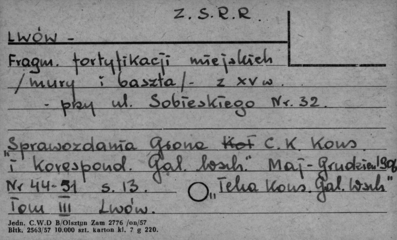 Z.S.R.R.
LWÓW -
Fragm. fortyfikacji miejskich
/mury i baszta/- z XV w.
- przy ul. Sobieskiego Nr. 32.
"Sprawozdania Grona C.K. Kons.
i Korespond. Gal. Wsch." Maj-Grudzień 1906
Nr 44-51 s. 13. "Teka Kons. Gal. Wsch"
Tom III Lwów.
Jedn. C.W.D B/Olsztyn Zam 2776 /on/57
Błtk. 2563/57 10.000 szt. karton kl. 7 g 220.